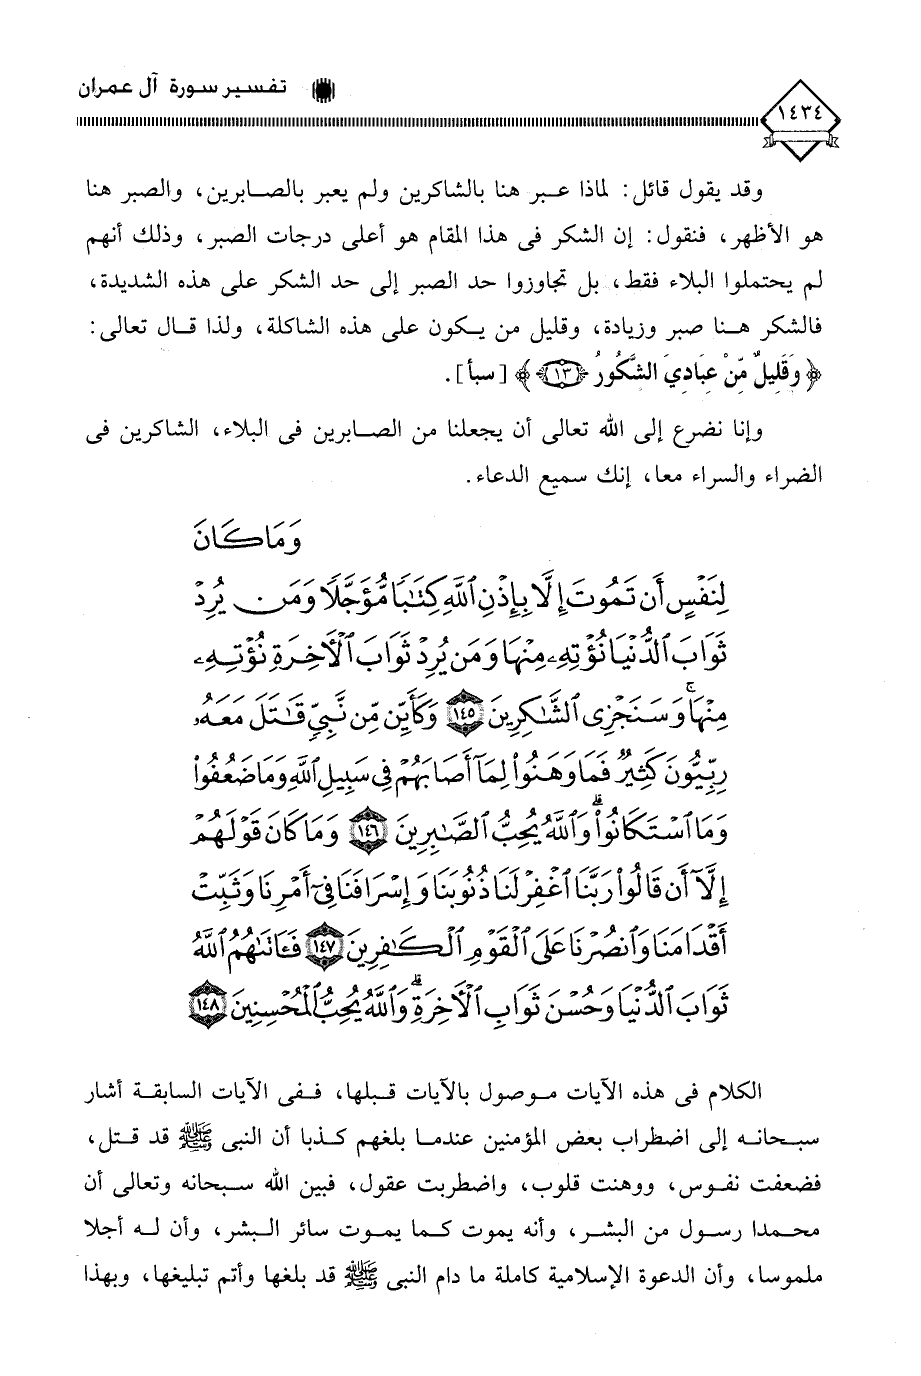 تفسير سورة آل عمران
١٤٣٤
وقد يقول قائل: لماذا عبر هنا بالشاكرين ولم يعبر بالصابرين، والصبر هنا
هو الأظهر، فنقول: إن الشكر فى هذا المقام هو أعلى درجات الصبر، وذلك أنهم
لم يحتملوا البلاء فقط، بل تجاوزوا حد الصبر إلى حد الشكر على هذه الشديدة،
فالشكر هنا صبر وزيادة، وقليل من يكون على هذه الشاكلة، ولذا قال تعالى:
﴿ وَقَلِيلٌ مِّنْ عِبَادِيَ الشَّكُورُ ﴿١٣﴾ ﴾ [سبأ].
وإنا نضرع إلى الله تعالى أن يجعلنا من الصابرين فى البلاء، الشاكرين فى
الضراء والسراء معا، إنك سميع الدعاء.
وَمَا كَانَ
لِنَفْسٍ أَن تَمُوتَ إِلَّا بِإِذْنِ ٱللَّهِ كِتَٰبًا مُّؤَجَّلًا وَمَن يُرِدْ
ثَوَابَ ٱلدُّنْيَا نُؤْتِهِۦ مِنْهَا وَمَن يُرِدْ ثَوَابَ ٱلْأَخِرَةِ نُؤْتِهِۦ
مِنْهَا ۚ وَسَنَجْزِى ٱلشَّٰكِرِينَ ﴿١٤٥﴾ وَكَأَيِّن مِّن نَّبِىٍّ قَٰتَلَ مَعَهُۥ
رِبِّيُّونَ كَثِيرٌ فَمَا وَهَنُوا۟ لِمَآ أَصَابَهُمْ فِى سَبِيلِ ٱللَّهِ وَمَا ضَعُفُوا۟
وَمَا ٱسْتَكَانُوا۟ ۗ وَٱللَّهُ يُحِبُّ ٱلصَّٰبِرِينَ ﴿١٤٦﴾ وَمَا كَانَ قَوْلَهُمْ
إِلَّآ أَن قَالُوا۟ رَبَّنَا ٱغْفِرْ لَنَا ذُنُوبَنَا وَإِسْرَافَنَا فِىٓ أَمْرِنَا وَثَبِّتْ
أَقْدَامَنَا وَٱنصُرْنَا عَلَى ٱلْقَوْمِ ٱلْكَٰفِرِينَ ﴿١٤٧﴾ فَـَٔاتَىٰهُمُ ٱللَّهُ
ثَوَابَ ٱلدُّنْيَا وَحُسْنَ ثَوَابِ ٱلْأَخِرَةِ ۗ وَٱللَّهُ يُحِبُّ ٱلْمُحْسِنِينَ ﴿١٤٨﴾
الكلام فى هذه الآيات موصول بالآيات قبلها، ففى الآيات السابقة أشار
سبحانه إلى اضطراب بعض المؤمنين عندما بلغهم كذبا أن النبى ﷺ قد قتل،
فضعفت نفوس، ووهنت قلوب، واضطربت عقول، فبين الله سبحانه وتعالى أن
محمدا رسول من البشر، وأنه يموت كما يموت سائر البشر، وأن له أجلا
ملموسا، وأن الدعوة الإسلامية كاملة ما دام النبى ﷺ قد بلغها وأتم تبليغها، وبهذا